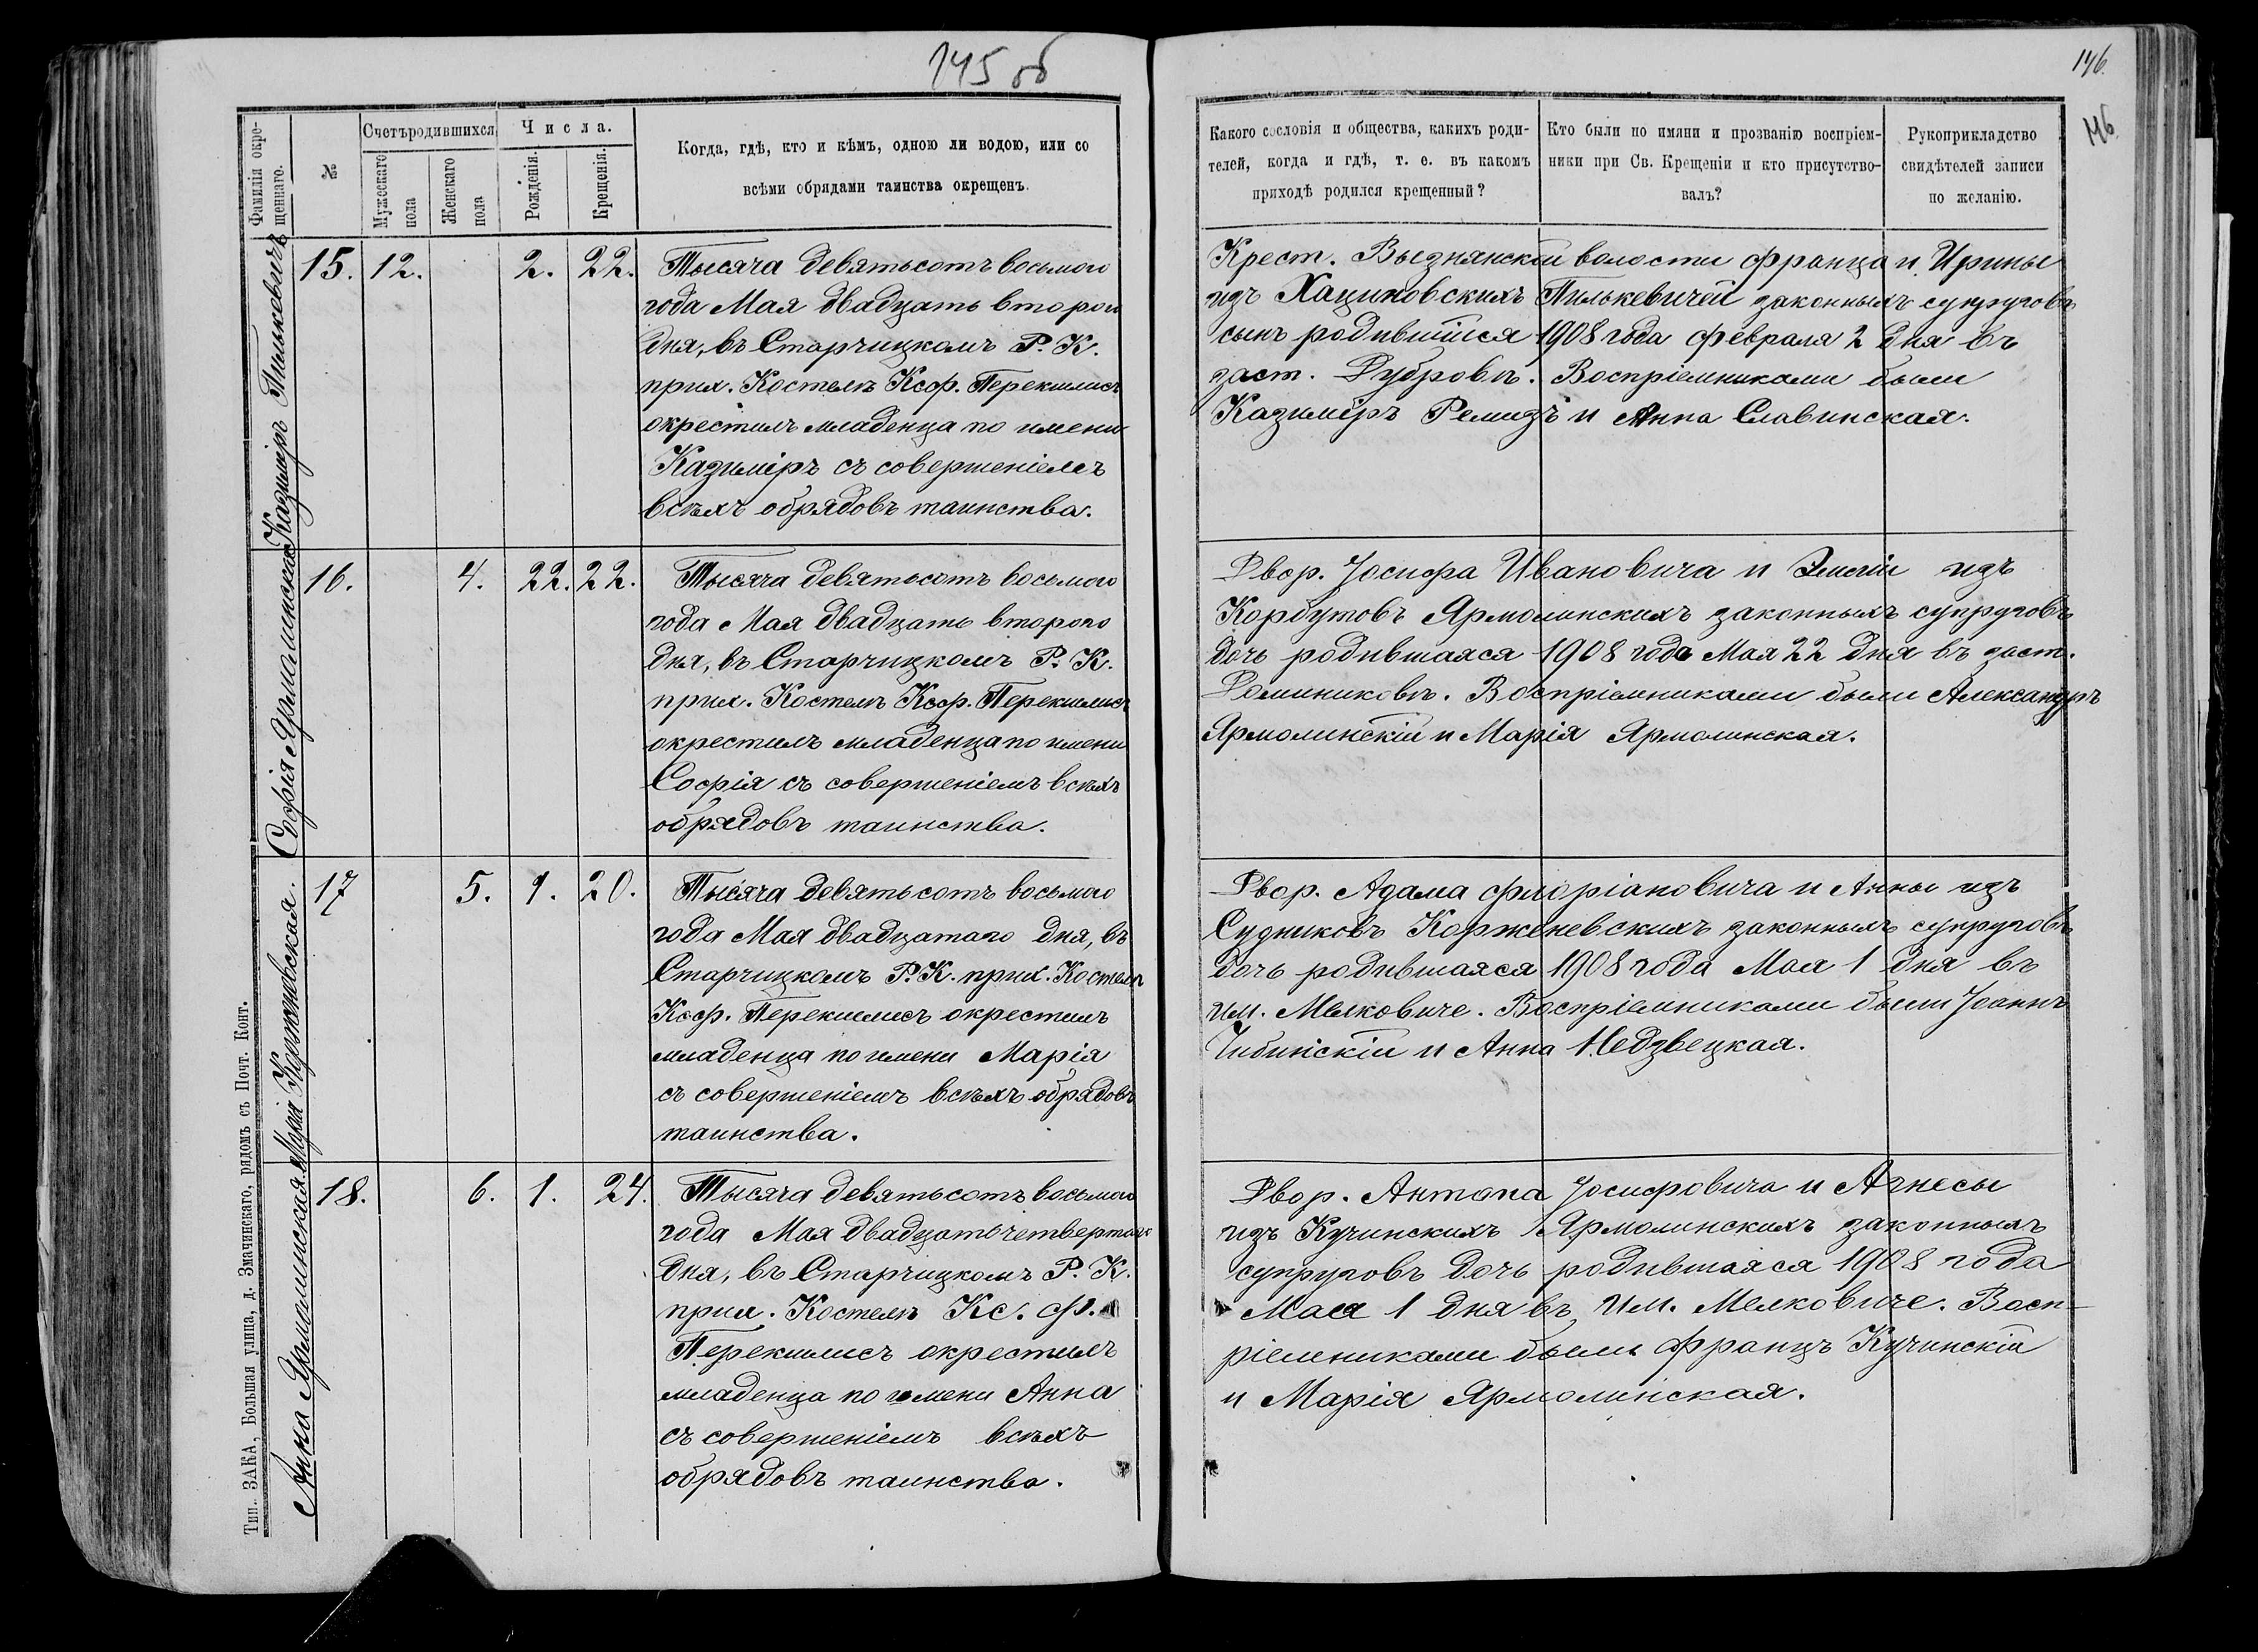 145 об
146.
146.
Фамилія окрещеннаго.
№
Счетъ родившихся
Мужескаго пола
Женскаго пола
Числа.
Рожденія.
Крещенія.
Когда, гдѣ, кто и кѣмъ, одною ли водою, или со
всѣми обрядами таинства окрещенъ.
Какого сословія и общества, какихъ роди-
телей, когда и гдѣ, т. е. въ какомъ
приходѣ родился крещенный?
Кто были по имяни и прозванію воспріем-
ники при Св. Крещеніи и кто присутство-
валъ?
Рукоприкладство
свидѣтелей записи
по желанію.
Казиміръ Пилькевичъ
15. 12. 2. 22.
Тысяча девятьсотъ восьмого
года Мая двадцать второго
дня, въ Старчицкомъ Р. К.
прих. Костелѣ Ксф. Перекшлисъ
окрестилъ младенца по имени
Казиміръ съ совершеніемъ
всѣхъ обрядовъ таинства.
Крест. Вызнянской волости Франца и Ирины
изъ Хациновскихъ Пилькевичей законныхъ супруговъ
сынъ родившійся 1908 года февраля 2 дня въ
заст. Дубровѣ. Воспріемниками были
Казиміръ Ремизъ и Анна Славинская.
Софія Ярмолинская
16. 4. 22. 22.
Тысяча девятьсотъ восьмого
года Мая двадцать второго
дня, въ Старчицкомъ Р. К.
прих. Костелѣ Ксф. Перекшлисъ
окрестилъ младенца по имени
Софія съ совершеніемъ всѣхъ
обрядовъ таинства.
Двор. Іосифа Ивановича и Эмиліи изъ
Корбутовъ Ярмолинскихъ законныхъ супруговъ
дочь родившаяся 1908 года Мая 22 дня въ заст.
Доминиковѣ. Воспріемниками были Александръ
Ярмолинскій и Марія Ярмолинская.
Марія Корженевская.
17 5. 1. 20.
Тысяча девятьсотъ восьмого
года Мая двадцатаго дня, въ
Старчицкомъ Р. К. прих. Костелѣ
Ксф. Перекшлисъ окрестилъ
младенца по имени Марія
съ совершеніемъ всѣхъ обрядовъ
таинства.
Двор. Адама Флоріановича и Анны изъ
Судниковъ Корженевскихъ законныхъ супруговъ
дочь родившаяся 1908 года Мая 1 дня въ
им. Мелковиче. Воспріемниками были Іоаннъ
Чибинскій и Анна Недзвецкая.
Анна Ярмолинская.
18. 6. 1. 24.
Тысяча девятьсотъ восьмого
года Мая двадцать четвертаго
дня, въ Старчицкомъ Р. К.
прих. Костелѣ Кс. Ф.
Перекшлисъ окрестилъ
младенца по имени Анна
съ совершеніемъ всѣхъ
обрядовъ таинства.
Двор. Антона Іосифовича и Агнесы
изъ Кучинскихъ Ярмолинскихъ законныхъ
супруговъ дочь родившаяся 1908 года
Мая 1 дня въ им. Мелковиче. Восп-
ріемниками были Францъ Кучинскій
и Марія Ярмолинская.
Тип. ЗАКА, Большая улица, д. Змачинскаго, рядомъ съ Почт. Конт.